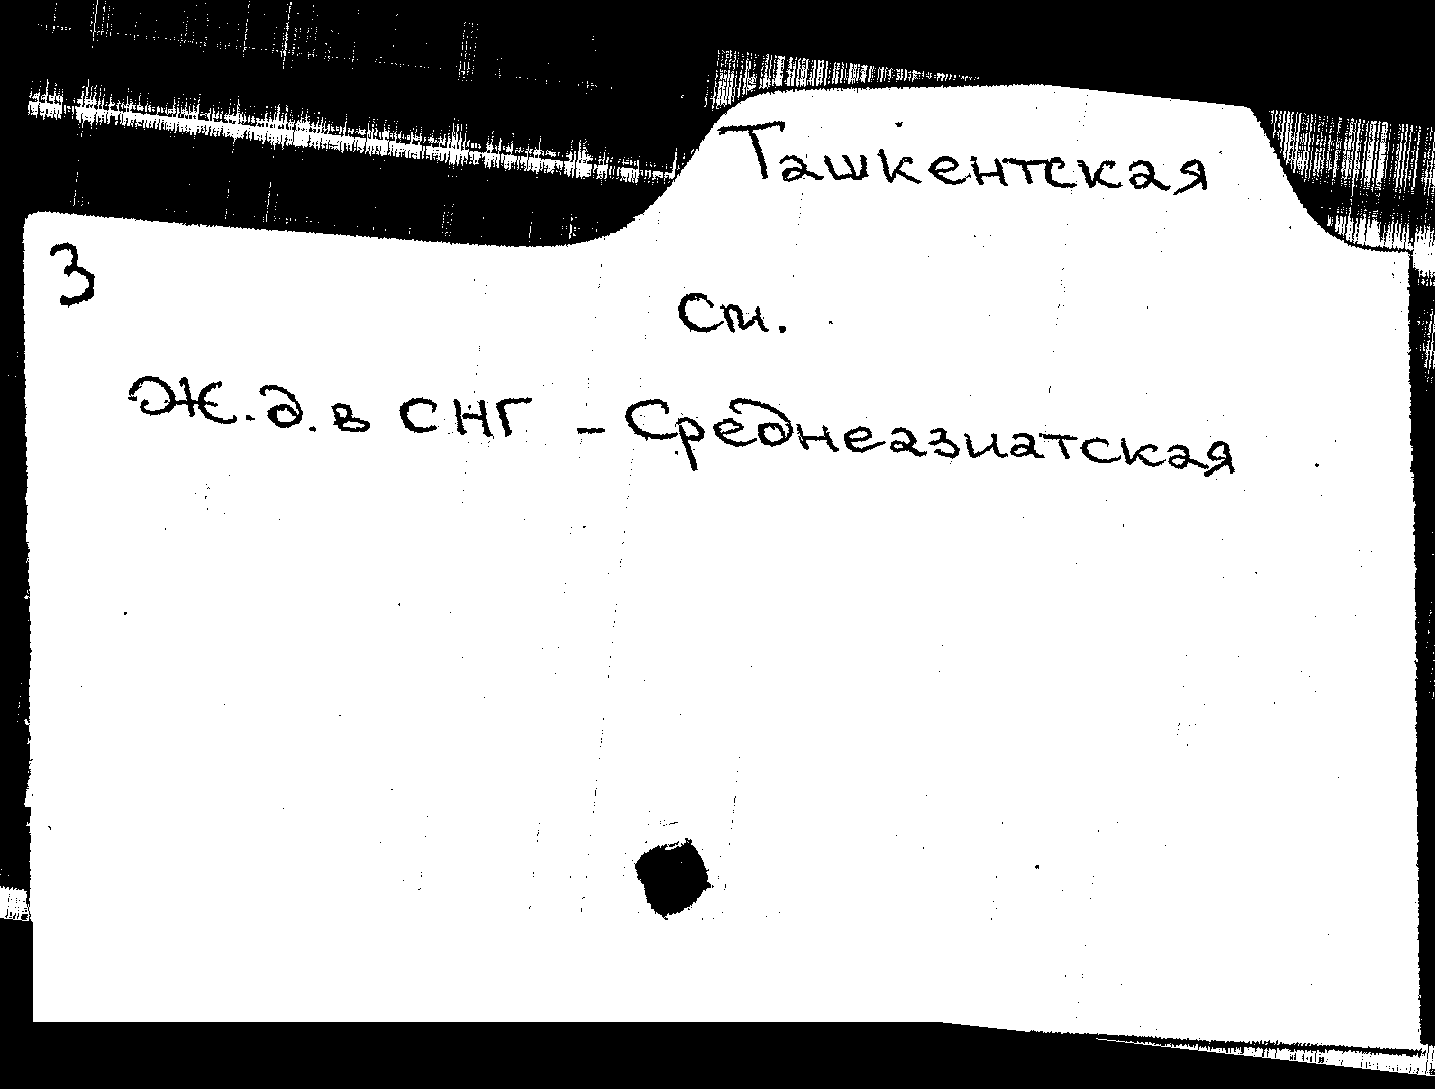 Ташкентская
3
См.
Ж.д. в СНГ - Среднеазиатская